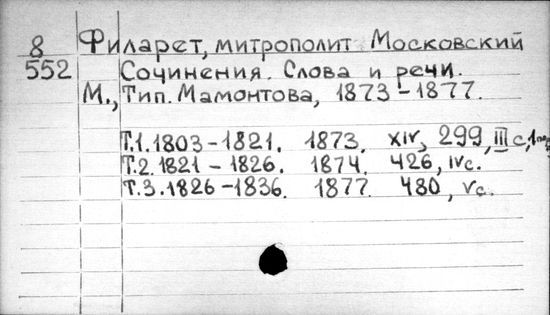 8 Филарет, митрополит Московский
552 Сочинения. Слова и речи.
М., Тип. Мамонтова, 1873-1877.
Т.1. 1803-1821. 1873. XIV, 299, III с., 1
Т.2. 1821-1826. 1874. 426, IV с.
Т.3. 1826-1836. 1877. 480, V с.